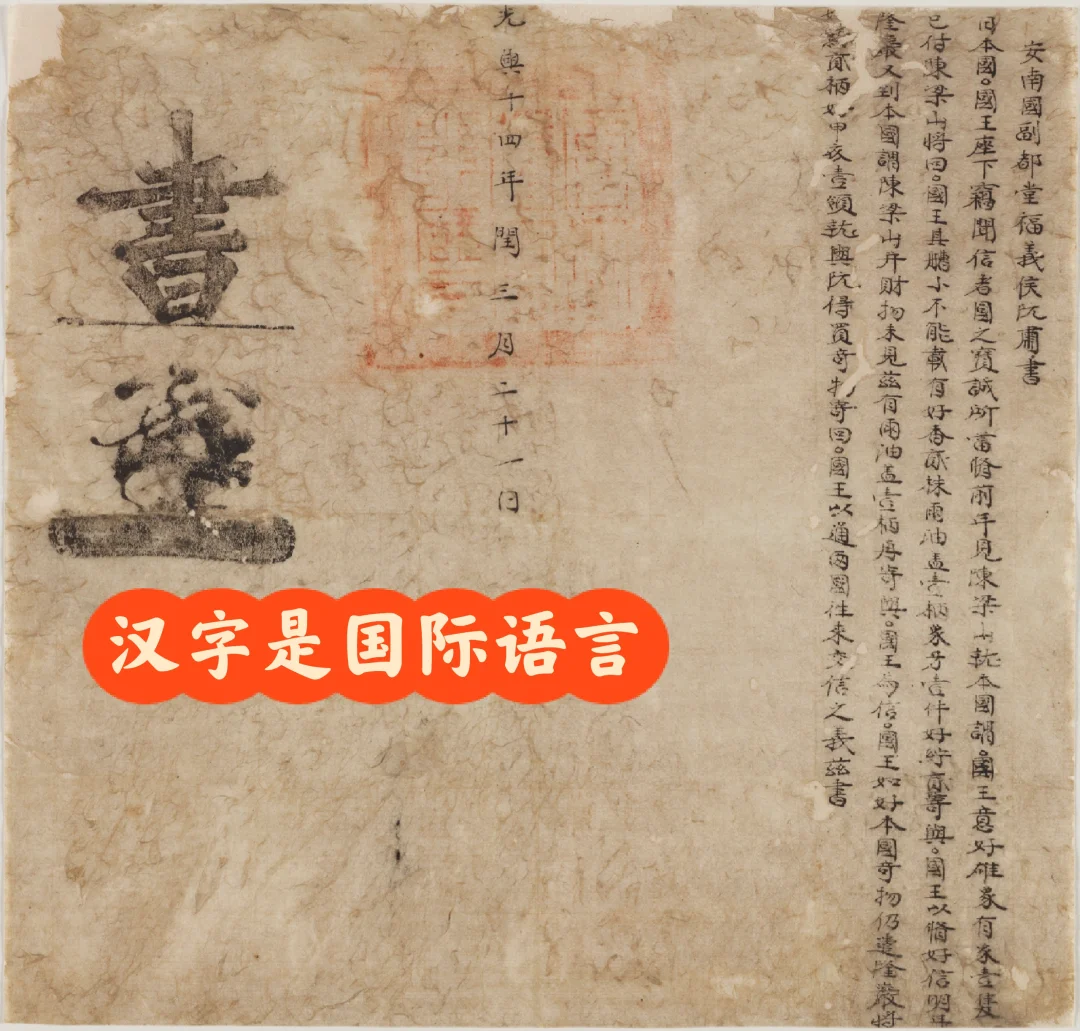 安南國副都堂福義侯阮肅書
日本國。國王座下竊聞信者國之寶誠所當脩前年見陳梁山就本國謂。國王意好雄象有象壹隻
已付陳梁山將回。國王其艚小不能載有好香貳株雨油盖壹柄象牙壹件好紵貳寄與。國王以脩好信明年
隆嚴又到本國謂陳梁山并財物未見茲有雨油盖壹柄再寄與。國王為信。國王如好本國奇物仍遣隆嚴將
貳柄好甲衣壹領就與阮得買奇物寄回。國王以通兩國往來交信之義茲書
光興十四年閏三月二十一日
書
汉字是国际语言